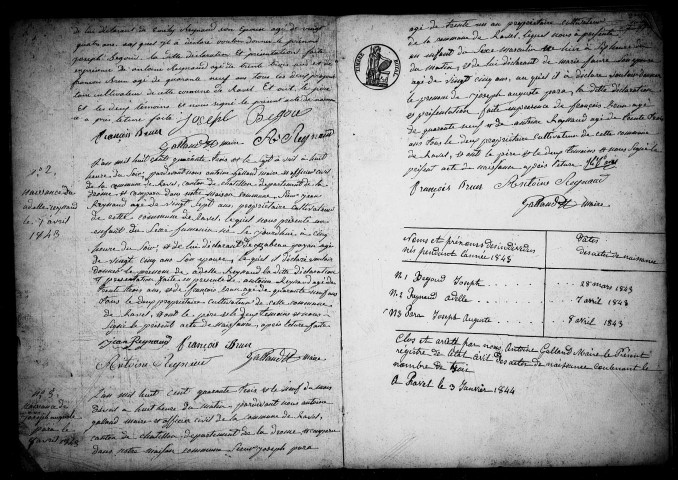 de lui déclarant et de Emily Reynaud son épouse agé de vingt
quatre ans aux quel il a déclaré vouloir donner le prénom
joseph Begou, la ditte déclaration et présentation faite
en présence de antoine Reynaud agé de trente trois ans et de
françois Brun agé de quarante neuf ans tous les deux propriétaire
cultivateur de cette commune de Ravel. Et ont le père
Et les deux témoins et nous signé le présent acte de naissance
après lecture faite Joseph Begou
François Brun
Galland maire A. Reynaud
n° 2
Naissance du
adelle reynaud
le 7 avril
1843
L'an mil huit cent quarante trois et le sept avril à huit
heure du soir, pardevant nous antoine Galland maire et officier civil
de la commune de Ravel, canton de chatillon département de la
drome, est comparu dans notre maison commune, Sieur jean
Reynaud agé de vingt sept ans, propriétaire cultivateur
de cette commune de Ravel, lequel nous a présenté un
enfant du sexe féminin né le jourd'hui à cinq
heure du soir, de lui déclarant et de
de vingt cinq ans son épouse, lequel il déclaré vouloir
donner le prénom de adelle Reynaud la ditte déclaration
et présentation faite en présence de antoine Reynaud agé de
trente trois ans, et de françois brun agé de quarante neuf ans
tous le deux propriétaire cultivateur de cette commune
de Ravel, et ont le père et le deux témoins et nous
signé le présent acte de naissance, après lecture faite
jean Reynaud François Brun
Antoine Reynaud Galland maire
n° 3
naissance de
joseph auguste
para le
8 avril 1843
L'an mil huit cent quarante trois et le neuf du mois
d'avril à huit heure du matin pardevant nous antoine
galand maire et officier civil de la commune de Ravel,
canton de chatillon département de la drome est comparu
dans notre maison commune Sieur joseph para
agé de trente un an propriétaire cultivateur
de la commune de Ravel, lequel nous a présenté
un enfant du sexe masculin né hier à
du matin, et de lui déclarant et de marie faure son épouse
agé de vingt cinq ans, au quel il à déclaré vouloir donner
le prénom de joseph auguste para la ditte déclaration
et présentation faite en présence de françois brun agé
de quarante neuf, et de antoine Reynaud agé de trente trois
ans tous le deux propriétaire cultivateur de cette commune
de Ravel, et ont le père et le deux témoins et nous signé le
présent acte de naissance après lecture
François Brun Antoine Reynaud
Galland maire
TIMBRE ROYAL
Noms et prénoms des individus nés pendant l'année 1843
Dates des actes de naissance
N. 1 Begoud Joseph 28 mars 1843
N. 2 Reynaud Adelle 7 avril 1843
N. 3 Para Joseph Auguste 8 avril 1843
Clos et arrêté par nous, Antoine Galland Maire le Présent
registre de l'état civil des actes de naissance contenant le
nombre de trois
A Ravel le 3 Janvier 1844